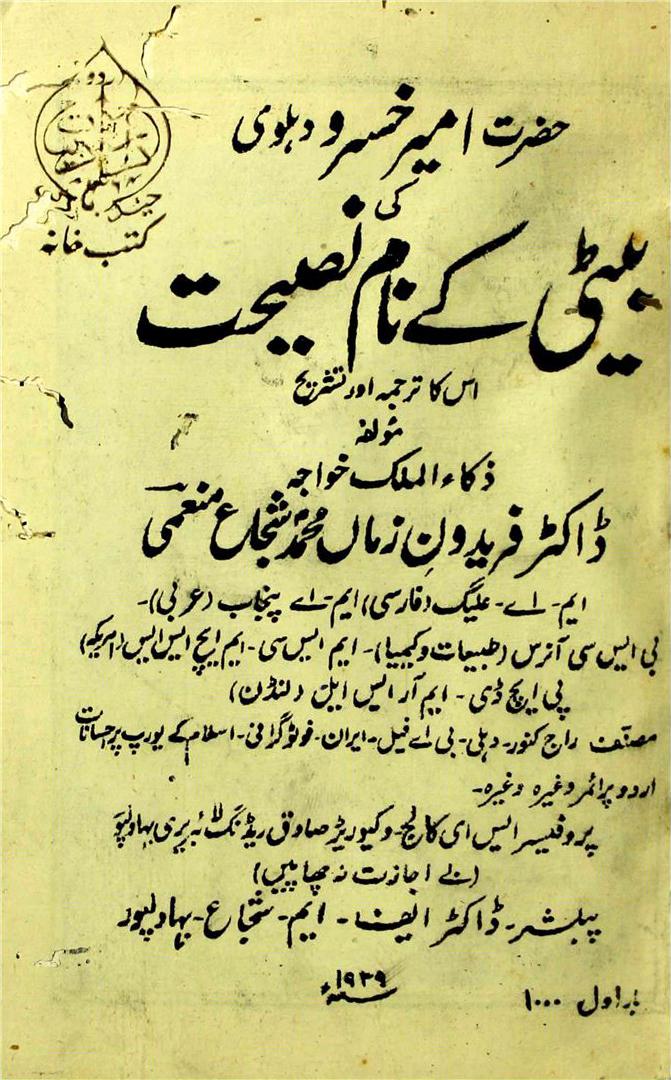 اردو
کتب خانہ
حضرت امیر خسرو دہلوی
کی
بیٹی کے نام نصیحت
اس کا ترجمہ اور تشریح
مؤلفہ
ذکاء الملک خواجہ
ڈاکٹر فریدونِ زماں محمد شجاع منعمی
ایم-اے-علیگ (فارسی) ایم-اے پنجاب (عربی)-
بی ایس سی آنرس (طبیعات و کیمیا)-ایم ایس سی-ایم ایچ ایس ایس (امریکہ)
پی ایچ ڈی-ایم آر ایس ایل (لنڈن)
مصنف راج کنور-دہلی-بی اے فیل-ایران-فوٹو گرافی-اسلام کے یورپ پر احسانات
اردو پرائمر وغیرہ وغیرہ-
پروفیسر ایس ای کالج-و کیوریٹر صادق ریڈنگ لائبریری بہاولپور
(بے اجازت نہ چھاپیں)
پبلشر-ڈاکٹر ایف-ایم-شجاع-بہاولپور
۱۹۳۹ء
بار اول ۱۰۰۰